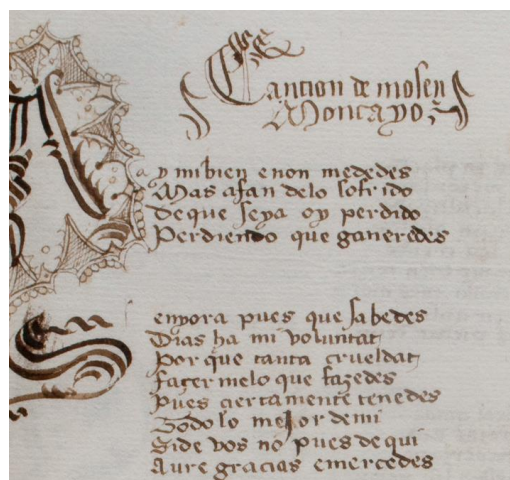 Cantion de mosen
Moncayo
Ay mi bien e non mededes
Mas afan delo sofrido
De que seya oy perdido
Perdiendo que ganeredes
Senyora pues que sabedes
Dias ha mi voluntat
Por que tanta crueldat
façer melo que fazedes
pues çiertamente tenedes
Todo lo mejor de mi
Si de vos no pues de qui
Aure gracias e mercedes